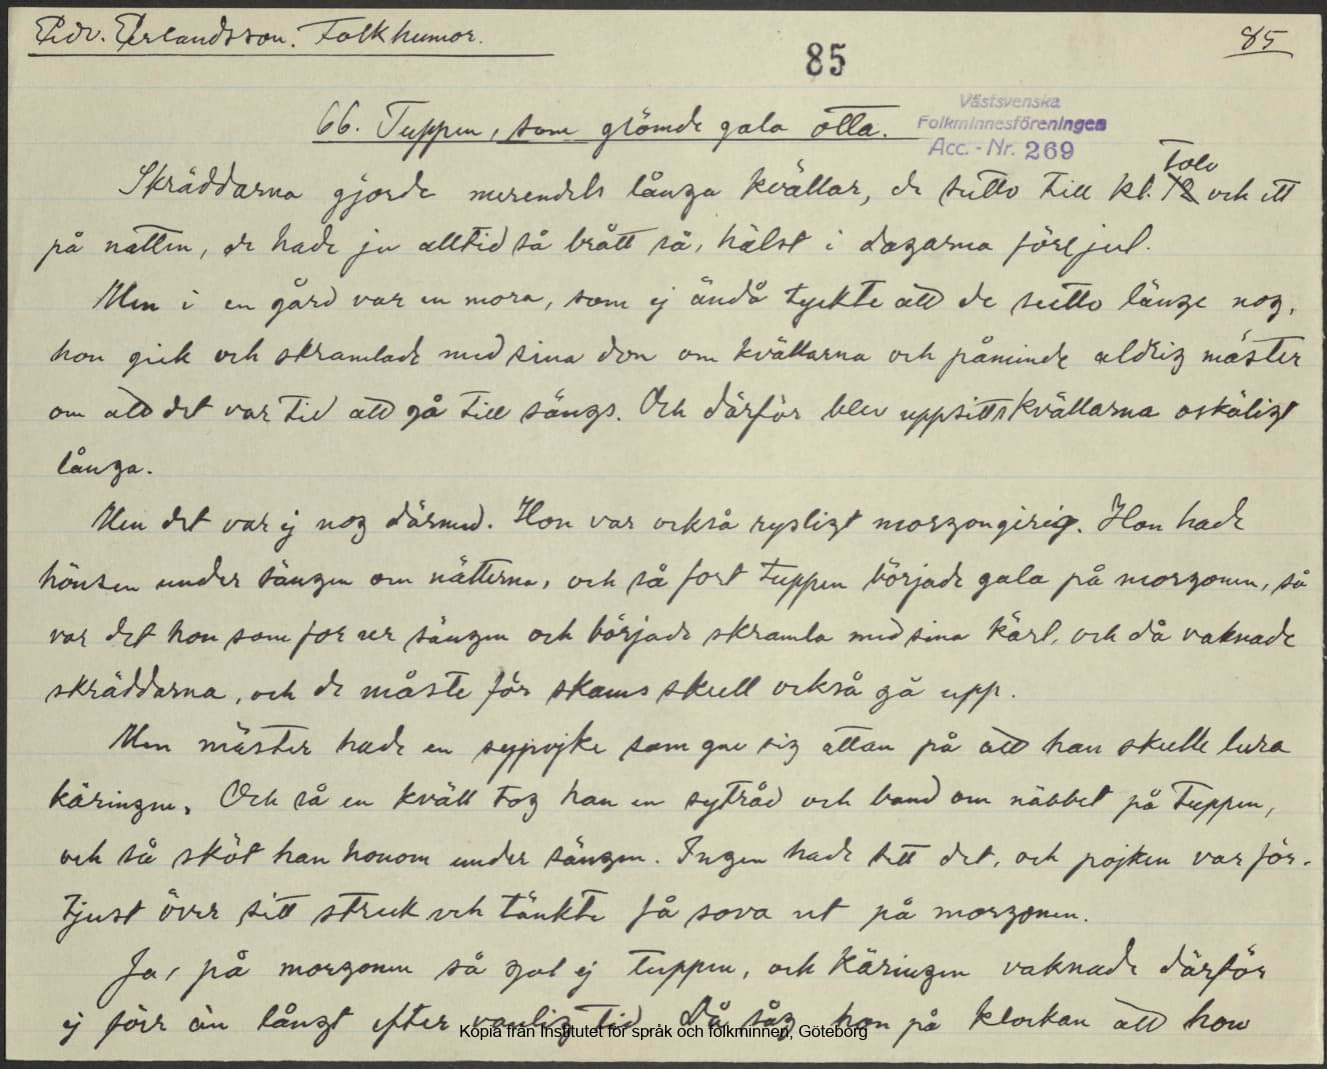 Edv. Erlandsson. Folkhumor.
85
85
66. Tuppen, som glömde gala otta.
Västsvenska
Folkminnesföreningen
Acc. - Nr. 269
Skräddarna gjorde merendels långa kvällar, de sutto till kl. tolv och ett
på natten, de hade ju alltid så brått så, hälst i dagarna före jul.
Men i en gård var en mora, som ej ändå tyckte att de sutto länge nog,
hon gick och skramlade med sina don om kvällarna och påminde aldrig mäster
om att det var tid att gå till sängs. Och därför blev uppsittskvällarna oskäligt
långa.
Men det var ej nog därmed. Hon var också rysligt morgongirig. Hon hade
hönsen under sängen om nätterna, och så fort tuppen började gala på morgonen, så
var det hon som for ur sängen och började skramla med sina kärl, och då vaknade
skräddarna, och de måste för skams skull också gå upp.
Men mäster hade en sypojke som gav sig attan på att han skulle lura
käringen. Och så en kväll tog han en sytråd och band om näbbet på tuppen,
och så sköt han honom under sängen. Ingen hade sett det, och pojken var för-
tjust över sitt streck och tänkte få sova ut på morgonen.
Ja, på morgonen så gol ej tuppen, och käringen vaknade därför
ej förr än långt efter vanlig tid. Då såg hon på klockan att hon
Kopia från Institutet för språk och folkminnen, Göteborg